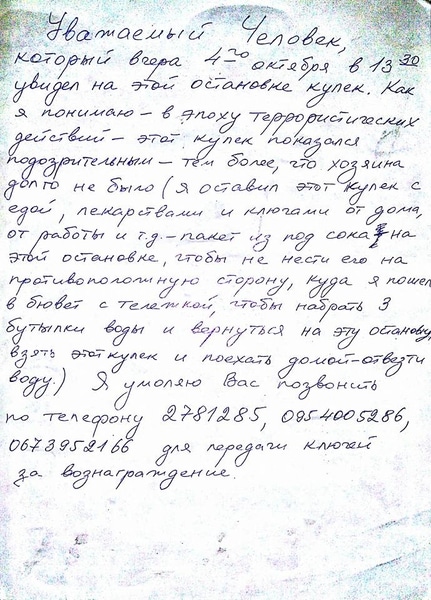 Уважаемый Человек,
который вчера 4-го октября в 13 30
увидел на этой остановке кулек. Как
я понимаю - в эпоху террористических
действий - этот кулек показался
подозрительным - тем более, что хозяина
долго не было (я оставил этот кулек с
едой, лекарствами и ключами от дома,
от работы и т.д. - пакет из под сока на
этой остановке, чтобы не нести его на
противоположную сторону, куда я пошел
в бювет с тележкой, чтобы набрать 3
бутылки воды и вернуться на эту остановку,
взять этот кулек и поехать домой - отвезти
воду.) Я умоляю Вас позвонить
по телефону 2781285, 0954005286,
0673952166 для передачи ключей
за вознаграждение.